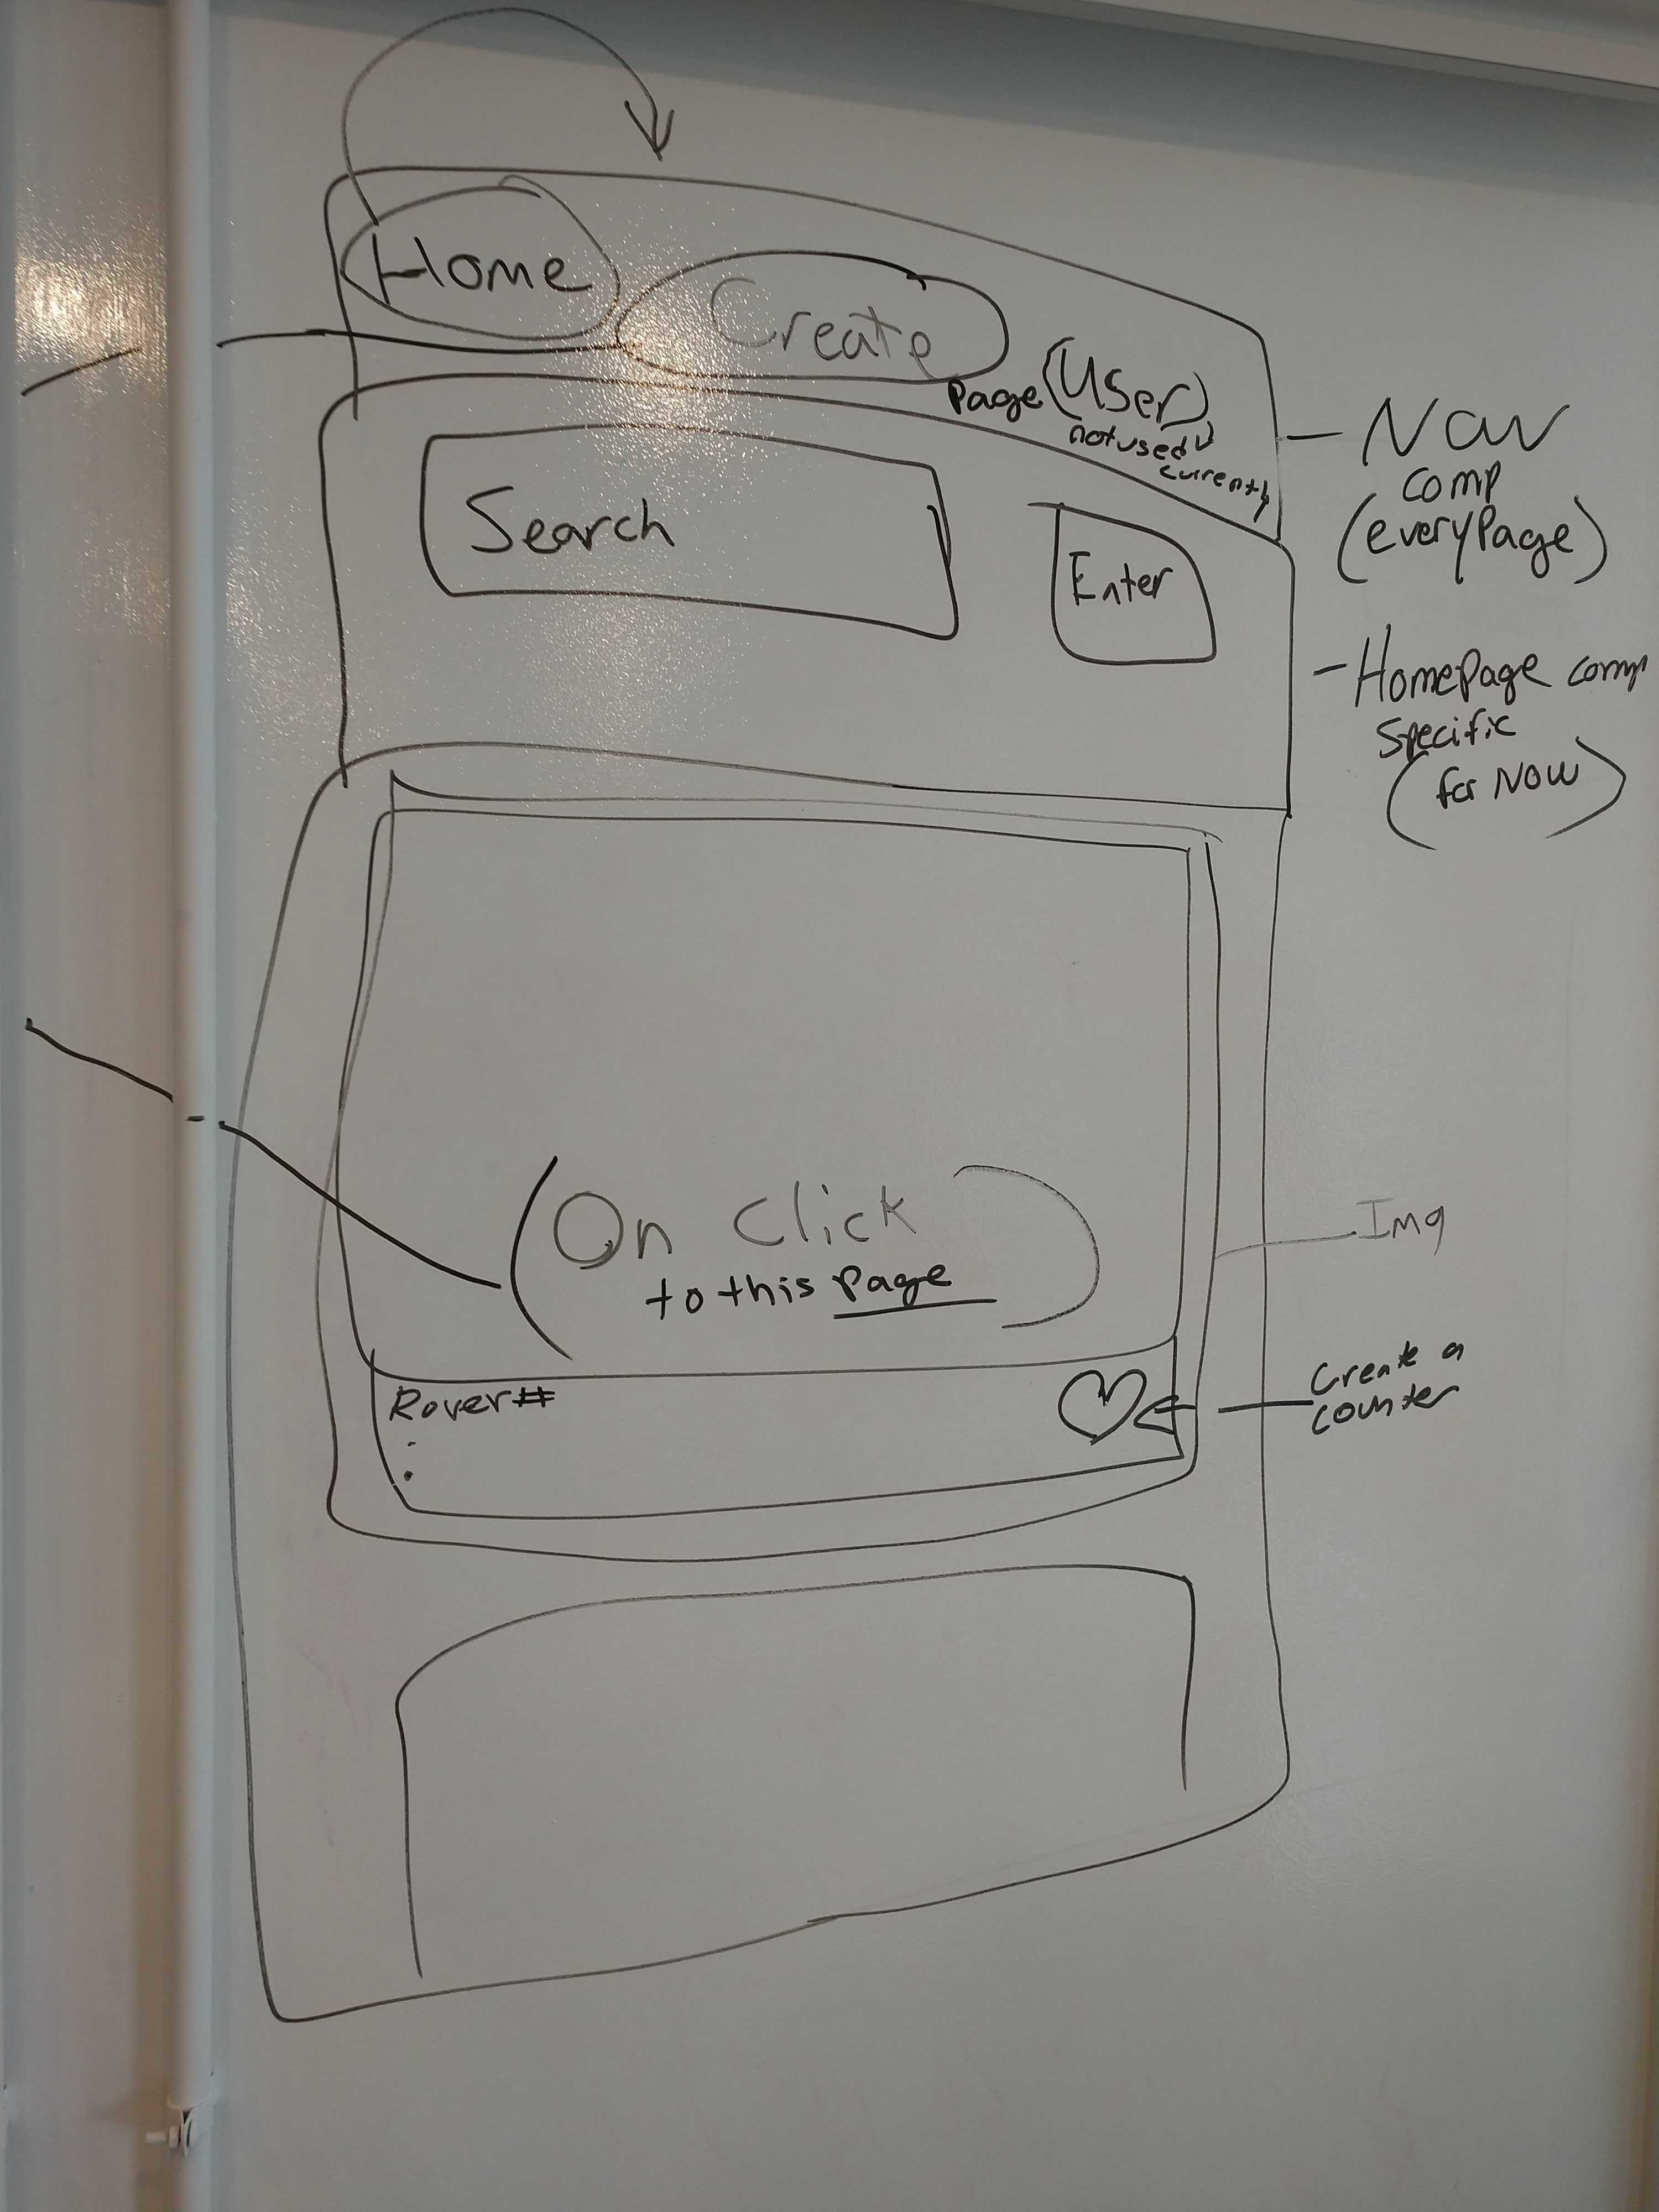 Home
Create
Page (User)
not used
currently
Search
Enter
- Nav
comp
(every Page)
- HomePage comp
Specific
(for Now)
(On Click
to this page)
Img
Rover #
Create a
counter